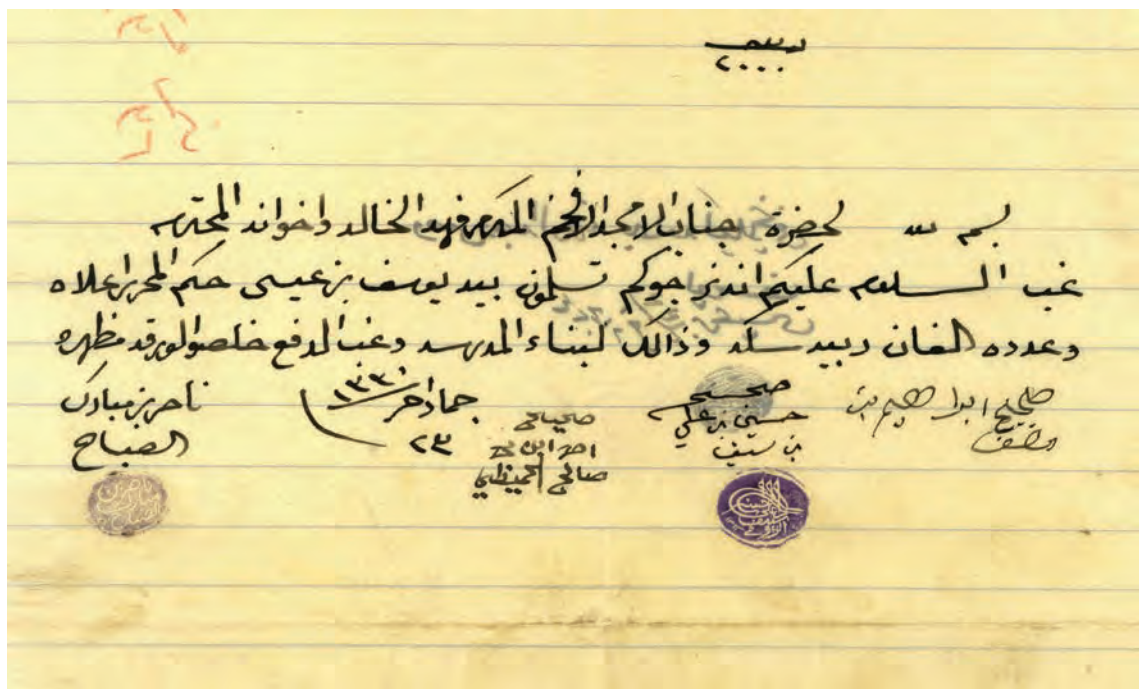 ربيه
٢٠٠٠
بسم الله لحضرة جناب الامجد الافخم المكرم فهد الخالد واخوانه المحترم
غب السلام عليكم انه نرجوكم تسلمون بيد يوسف بن عيسى حكم المحرر اعلاه
وعدده الفان ربيه سكه وذالك لبناء المدرسه وغب الدفع خلصوا الورقه مظهره
صحيح ابراهيم بن مضف
صحيح
حسين بن علي
بن سيف
صحيح
احمد ابن محمد
صالح الحميضي
جماد اخر ١٣٣٠
٢٣
ناصر بن مبارك
الصباح